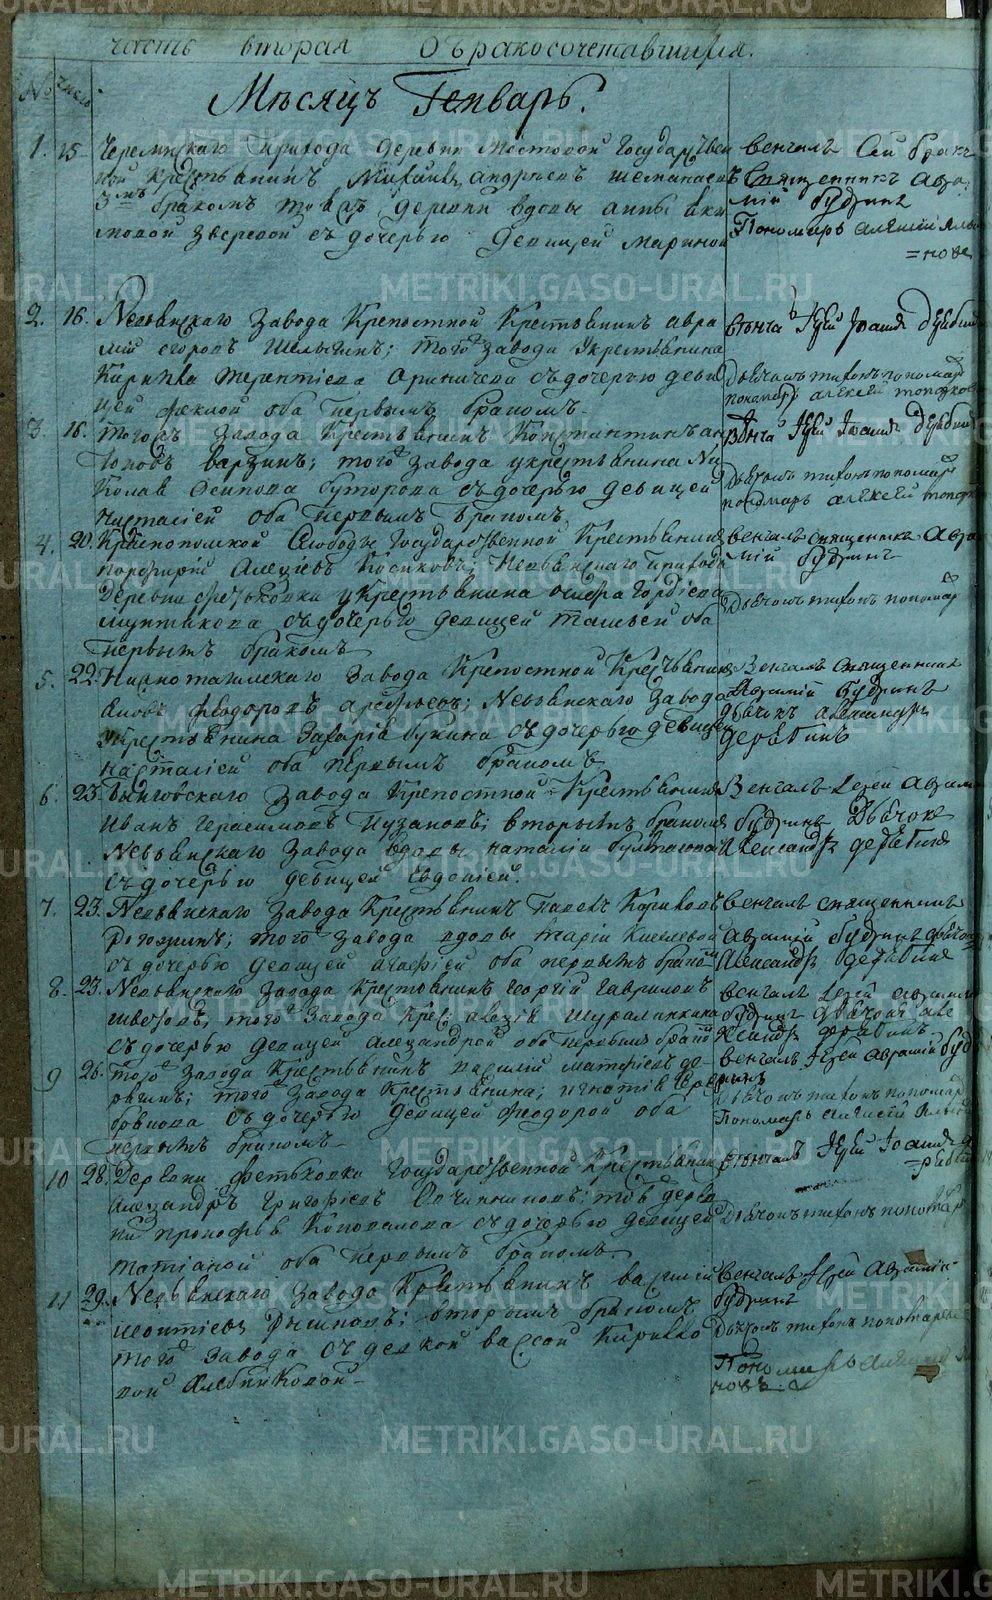 часть вторая О бракосочетавшихся.
№ число
Мѣсяцъ Генварь.
1. 15 Черемисскаго Прихода деревни Мостовой государствен
ной крестьянинъ Михаилъ Андреевъ Шеманаевъ
3мъ бракомъ тойже деревни вдовы Анны Еки
мовой Зверевой съ дочерью девицей Мариной
венчалъ Сей бракъ
Священникъ Авра
мій Будринъ
Пономарь Алексій Ял
=новъ
2. 16. Невьянскаго Завода Крепостной Крестьянинъ Авра
мій Егоровъ того Завода Укрестьянина
Кирилла Терентіева съ дочерью деви
цей Феклой оба первымъ бракомъ
вѣнча Іерей Іоаннъ Дерябинъ
Дьячокъ Тихонъ Пономар
пономарь Алексей Топорков
3. 16. Тогожъ Завода Крестьянинъ Константинъ Ан
типовъ Варзинъ; того Завода у крестьянина Ни
колая Осипова Буторова съ дочерью девицей
Настасіей оба первымъ бракомъ
вѣнча Іерей Іоаннъ Деряби
Дьячокъ Тихонъ Пономар
пономарь Алексей Топорк
4. 20. Краснопольской Слободы Государственной Крестьянинъ
Порфирій Алексіевъ Косиковъ; Невьянскаго Прихода
Деревни Федьковки у Крестьянина Осифа Гордіева
Мунтикова съ дочерью девицей оба
первымъ бракомъ
венчалъ священникъ Авра
мій Будринъ
Дьячокъ Тихонъ Пономар
5. 22. Нижнотагилскаго Завода Крепостной Крестьянинъ
Яковъ Феодоровъ Арефьевъ; Невьянскаго Завода
Укрестьянина Захарія Букина съ дочерью девицей
Настасіей оба первымъ бракомъ
Венчалъ священникъ
Аврамій Будринъ
дьячокъ Александръ
Дерябинъ
6. 23. Быньговскаго Завода Крепостной Крестьянинъ
Иванъ Герасимовъ Пузановъ; вторымъ бракомъ
Невьянскаго Завода вдовы Наталіи
съ дочерью девицей Евдокіей.
Венчалъ Іерей Аврам
Будринъ Дьячокъ
Александръ Дерябинъ
7. 23. Невьянскаго Завода Крестьянинъ Павелъ Кариповъ
Рогожинъ; того Завода вдовы Маріи Киселевой
съ дочерью девицей Агафіей оба первымъ бракомъ
венчалъ священникъ
Аврамій Будринъ дьячокъ
Александръ Дерябинъ
8. 23. Невьянскаго Завода Крестьянинъ Георгій Гавриловъ
Швецовъ; того Завода Крес Шуралинкина
съ дочерью девицей Александрой оба первымъ брако
венчалъ Іерей Аврамій
Будринъ Дьячокъ Але
ксандръ Дерябинъ
9 26. того Завода Крестьянинъ Василій Матфіевъ
того Завода Крестьянина; Игнатія
съ дочерью девицей Феодорой оба
первымъ бракомъ
венчалъ Іерей Аврамій Буд
ринъ
Дьячокъ Тихонъ Пономар
Пономарь Алексій
10 28. Деревни Федьковки Государственной Крестьянин
Александръ Григоріевъ Овчинниковъ; той дерев
ни Прокофья Коновалова съ дочерью девицей
Татіаной оба первымъ бракомъ
вѣнчалъ Іерей Іоаннъ Де
=рябин
Дьячокъ Тихонъ Пономар
11 29. Невьянскаго Завода Крестьянинъ Василій
Леонтіевъ вторымъ бракомъ
того Завода съ девкой Вассой Кирилло
вой
Венчалъ Іерей Аврамій
Будринъ
Дьячокъ Тихонъ Пономарев
Пономарь Алексій
новъ
METRIKI.GASO-URAL.RU